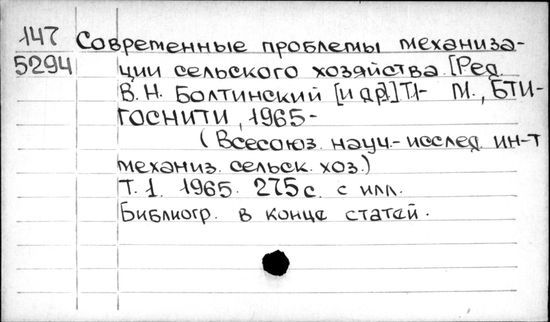 147 Современные проблемы механиза-
5294 ции сельского хозяйства. [Ред.
В. Н. Болтинский [и др.] Т.1- М., БТИ-
ГОСНИТИ, 1965-
(Всесоюз. науч.-исслед. ин-т
механиз. сельск. хоз.)
Т. 1. 1965. 275 с. с илл.
Библиогр. в конце статей.